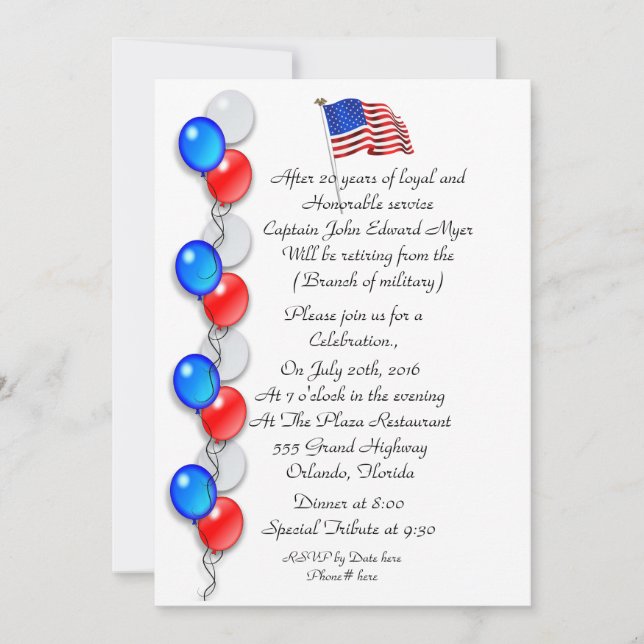 After 20 years of loyal and
Honorable service
Captain John Edward Myer
Will be retiring from the
(Branch of military)
Please join us for a
Celebration.,
On July 20th, 2016
At 7 o'clock in the evening
At The Plaza Restaurant
555 Grand Highway
Orlando, Florida
Dinner at 8:00
Special Tribute at 9:30
RSVP by Date here
Phone# here